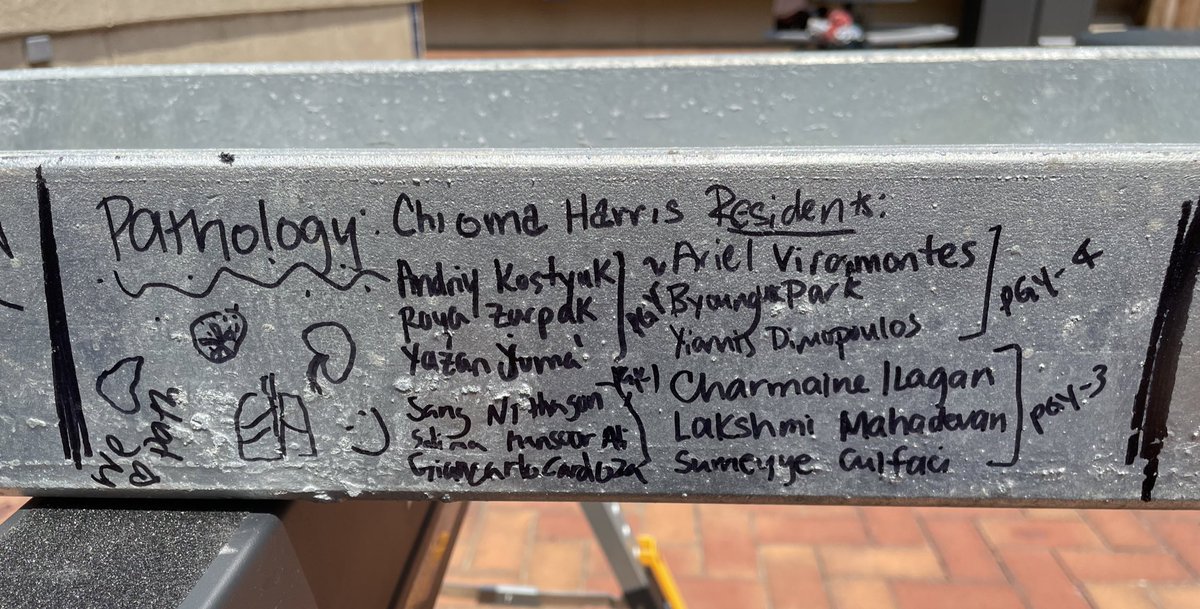 Pathology: Chioma Harris Residents:
Andriy Kostyuk
Roya Zarpak
Yazan Juma'
PGY
Sang Nithasan
Salima Mansoor Ali
Giancarlo Cardoza
PGY-1
Ariel Viramontes
Byoung Park
Yiannis Dimopoulos
PGY-4
Charmaine Ilagan
Lakshmi Mahadevan
Sumeyye Culfaci
PGY-3
We
Path